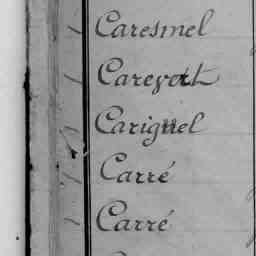 Caresmel
Carevert
Cariguel
Carré
Carré